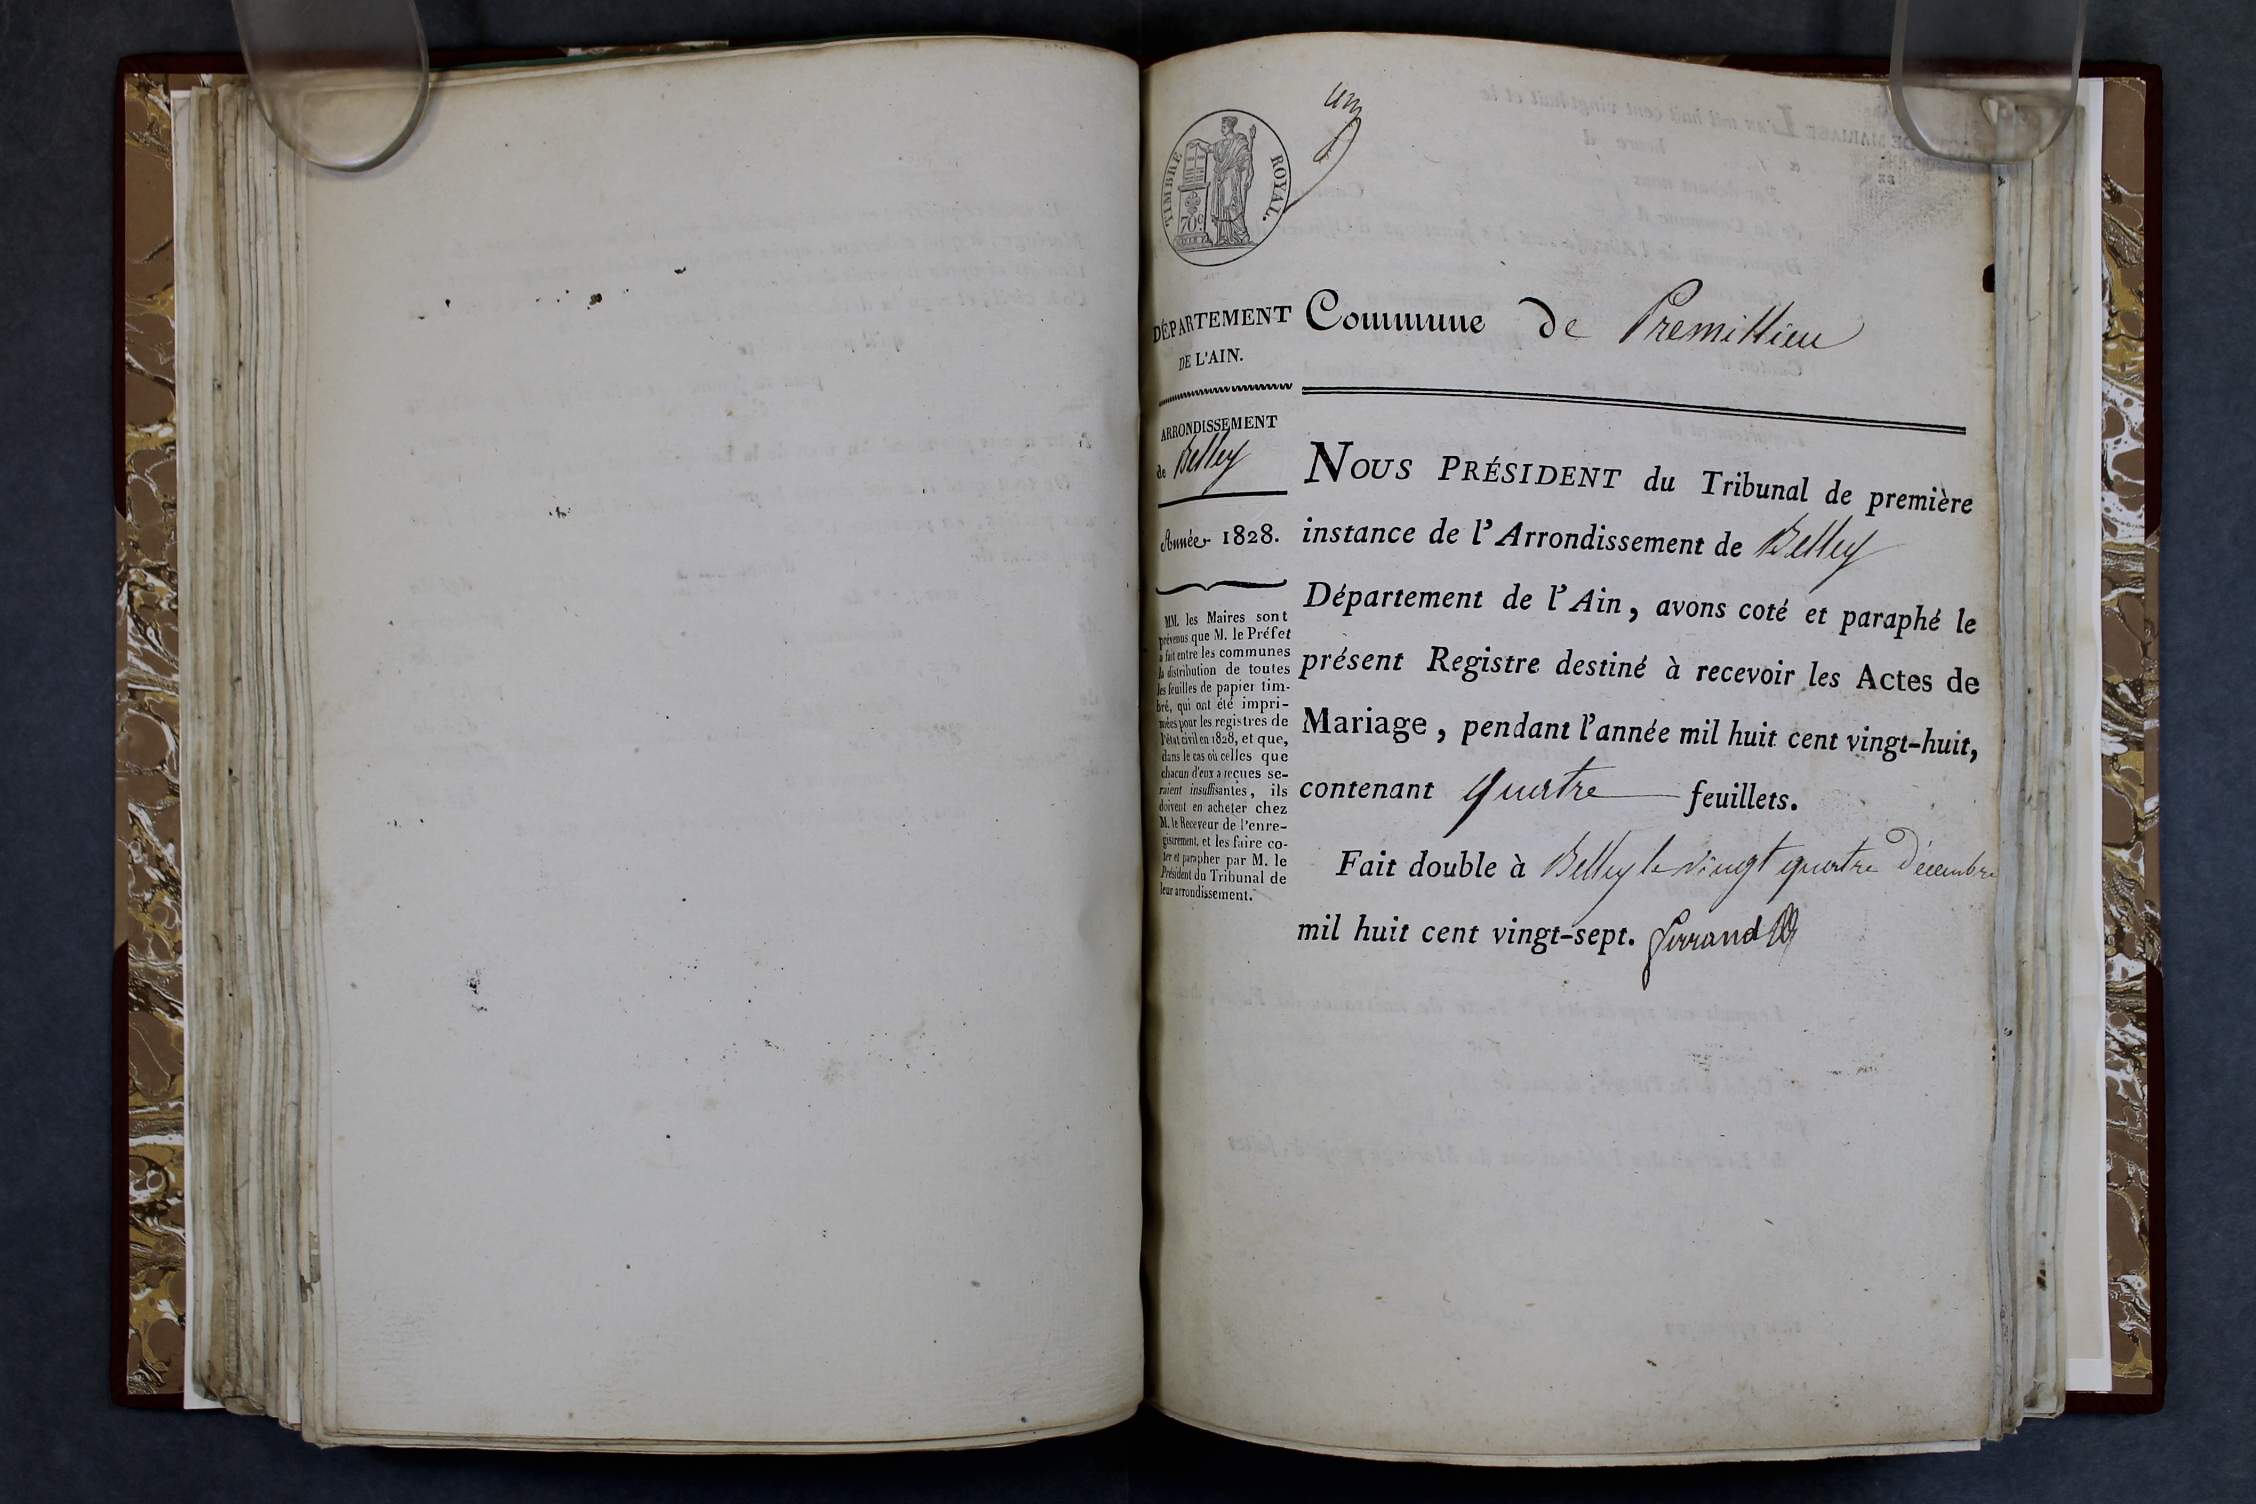 un
TIMBRE ROYAL.
70c
DÉPARTEMENT
DE L'AIN.
Commune de Premillieu
ARRONDISSEMENT
de Belley
Année 1828.
MM. les Maires sont
prévenus que M. le Préfet
a fait entre les communes
la distribution de toutes
les feuilles de papier tim-
bré, qui ont été impri-
mées pour les registres de
l'état civil en 1828, et que,
dans le cas où celles que
chacun d'eux a reçues se-
raient insuffisantes, ils
doivent en acheter chez
M. le Receveur de l'enre-
gistrement, et les faire co-
ter et parapher par M. le
Président du Tribunal de
leur arrondissement.
NOUS PRÉSIDENT du Tribunal de première
instance de l'Arrondissement de Belley
Département de l'Ain, avons coté et paraphé le
présent Registre destiné à recevoir les Actes de
Mariage, pendant l'année mil huit cent vingt-huit,
contenant quatre feuillets.
Fait double à Belley le vingt quatre Décembre
mil huit cent vingt-sept. Ferrand